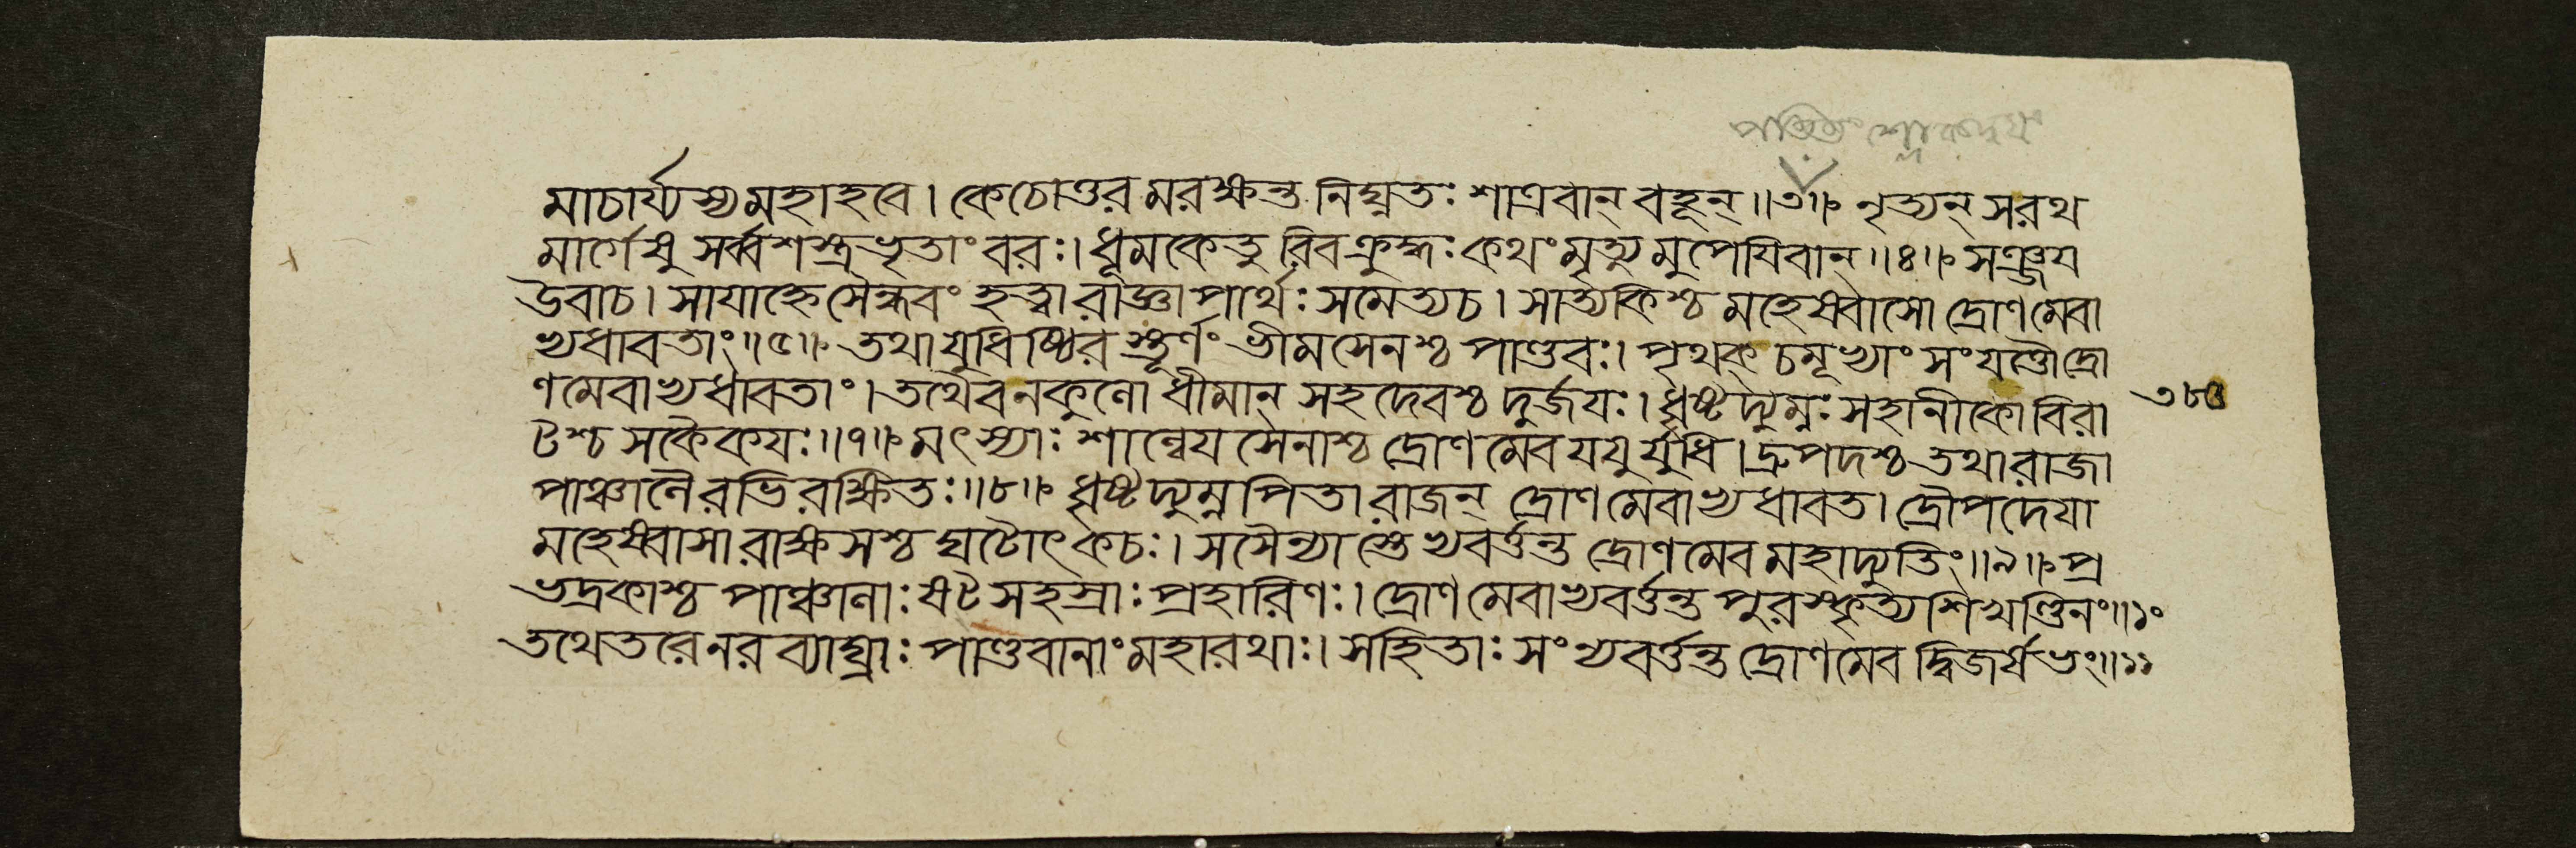 পতিতং শ্লোকদ্বয়ং
মাচার্য্যস্য মহাহবে। কে চোত্তরমরক্ষন্ত নিঘ্নতঃ শাত্রবান্ বহূন্॥৩॥ নৃত্যন্ সরথ
মার্গেষু সর্ব্বশস্ত্রভৃতাং বরঃ। ধূমকেতুরিব ক্রুদ্ধঃ কথং মৃত্যুমুপেযিবান্॥৪॥ সঞ্জয
উবাচ। সাযাহ্নে সৈন্ধবং হত্বা রাজ্ঞা পার্থঃ সমেত্য চ। সাত্যকিশ্চ মহেষ্বাসো দ্রোণমেবা
ভ্যধাবতাং॥৫॥ তথা যুধিষ্ঠিরস্তূর্ণং ভীমসেনশ্চ পাণ্ডবঃ। পৃথক্ চমূভ্যাং সংযত্তৌ দ্রো
ণমেবাভ্যধাবতাং। তথৈব নকুলো ধীমান্ সহদেবশ্চ দুর্জযঃ। ধৃষ্টদ্যুম্নঃ সহানীকো বিরা
৩৮
টশ্চ সকৈকযঃ॥৭॥ মৎস্যাঃ শাল্বেযসেনাশ্চ দ্রোণমেব যযুর্যুধি। দ্রুপদশ্চ তথা রাজা
পাঞ্চালৈরভিরক্ষিতঃ॥৮॥ ধৃষ্টদ্যুম্নপিতা রাজন্ দ্রোণমেবাভ্যধাবত। দ্রৌপদেযা
মহেষ্বাসা রাক্ষসশ্চ ঘটোৎকচঃ। সসৈন্যাস্তেভ্যবর্ত্তন্ত দ্রোণমেব মহাদ্যুতিং॥৯॥ প্র
ভদ্রকাশ্চ পাঞ্চালাঃ ষট্সহস্রাঃ প্রহারিণঃ। দ্রোণমেবাভ্যবর্ত্তন্ত পুরস্কৃত্য শিখণ্ডিনং॥১০
তথেতরে নরব্যাঘ্রাঃ পাণ্ডবানাং মহারথাঃ। সহিতাঃ সংভ্যবর্ত্তন্ত দ্রোণমেব দ্বিজর্ষভং॥১১